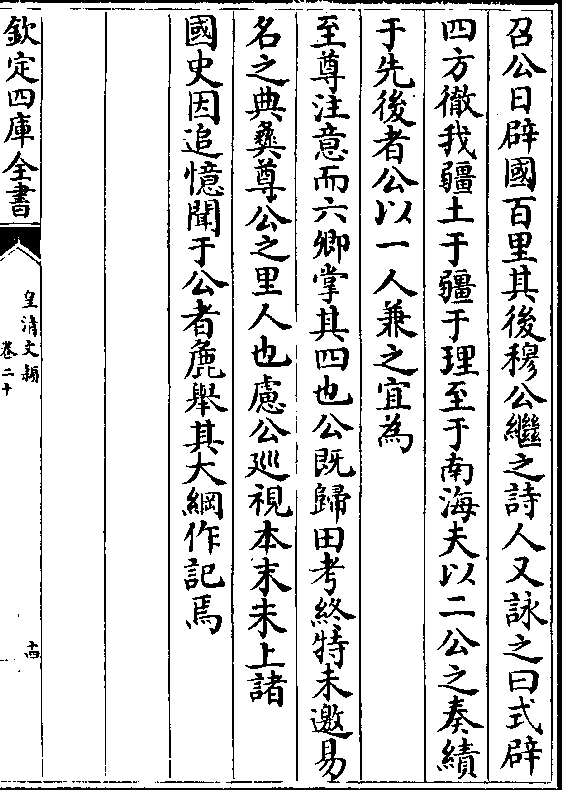 召公日辟國百里其後穆公繼之詩人又詠之曰式辟
四方徹我疆土于疆于理至于南海夫以二公之奏績
于先後者公以一人兼之宜為
至尊注意而六卿掌其四也公既歸田考終特未邀易
名之典彝尊公之里人也慮公廵視本末未上諸
國史因追憶聞于公者麁舉其大綱作記焉
欽定四庫全書
皇清文穎
卷二十
十四